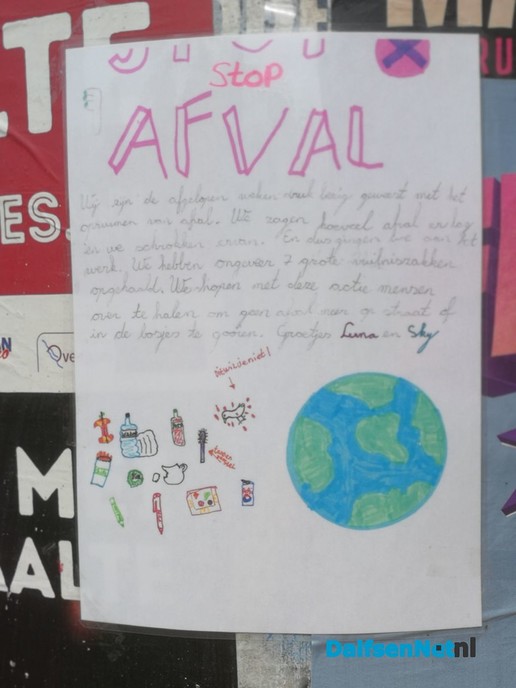 STOP
Stop
AFVAL
Wij zijn de afgelopen weken veel bezig geweest met het
opruimen van afval. We zagen hoeveel afval er lag
en we schrokken ervan. En dus gingen we aan het
werk. We hebben ongeveer 7 grote vuilniszakken
opgehaald. We hopen met deze actie mensen
over te halen om geen afval meer op straat of
in de bosjes te gooien. Groetjes Luna en Sky
DalfsenNet.nl
ES.
Ove
M
AAL
RU